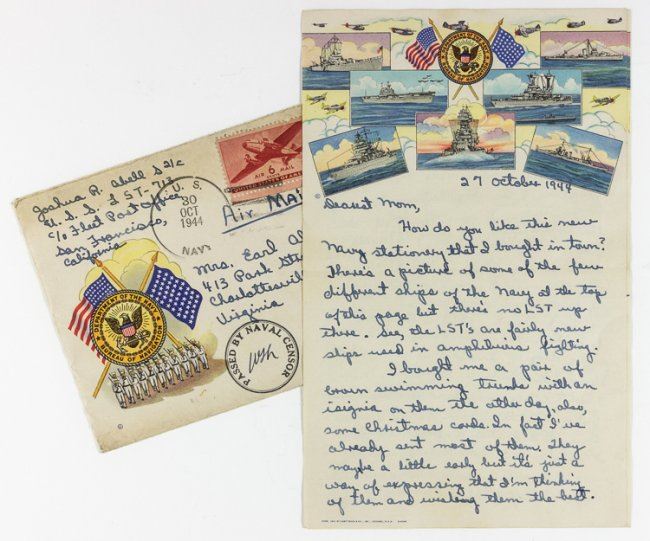 Joshua R. Abell S2/c
U.S.S. LST-712
c/o Fleet Post Office
San Francisco,
California
AIR 6¢ MAIL
UNITED STATES OF AMERICA
U. S.
30
OCT
1944
NAVY
Air Mai
Mrs. Earl Ab
413 Park Stre
Charlottesvill
Virginia
DEPARTMENT OF THE NAVY
BUREAU OF NAVIGATION
PASSED BY NAVAL CENSOR
DEPARTMENT OF THE NAVY
BUREAU OF NAVIGATION
27 October 1944
Dearest Mom,
How do you like this new
Navy stationery that I bought in town?
There's a picture of some of the few
different ships of the Navy at the top
of this page but there's no LST up
there. See, the LST's are fairly new
ships used in amphibious fighting.
I bought me a pair of
brown swimming trunks with an
insignia on them the other day, also,
some Christmas cards. In fact I've
already sent most of them. They
maybe a little early but it's just a
way of expressing that I'm thinking
of them and wishing them the best.